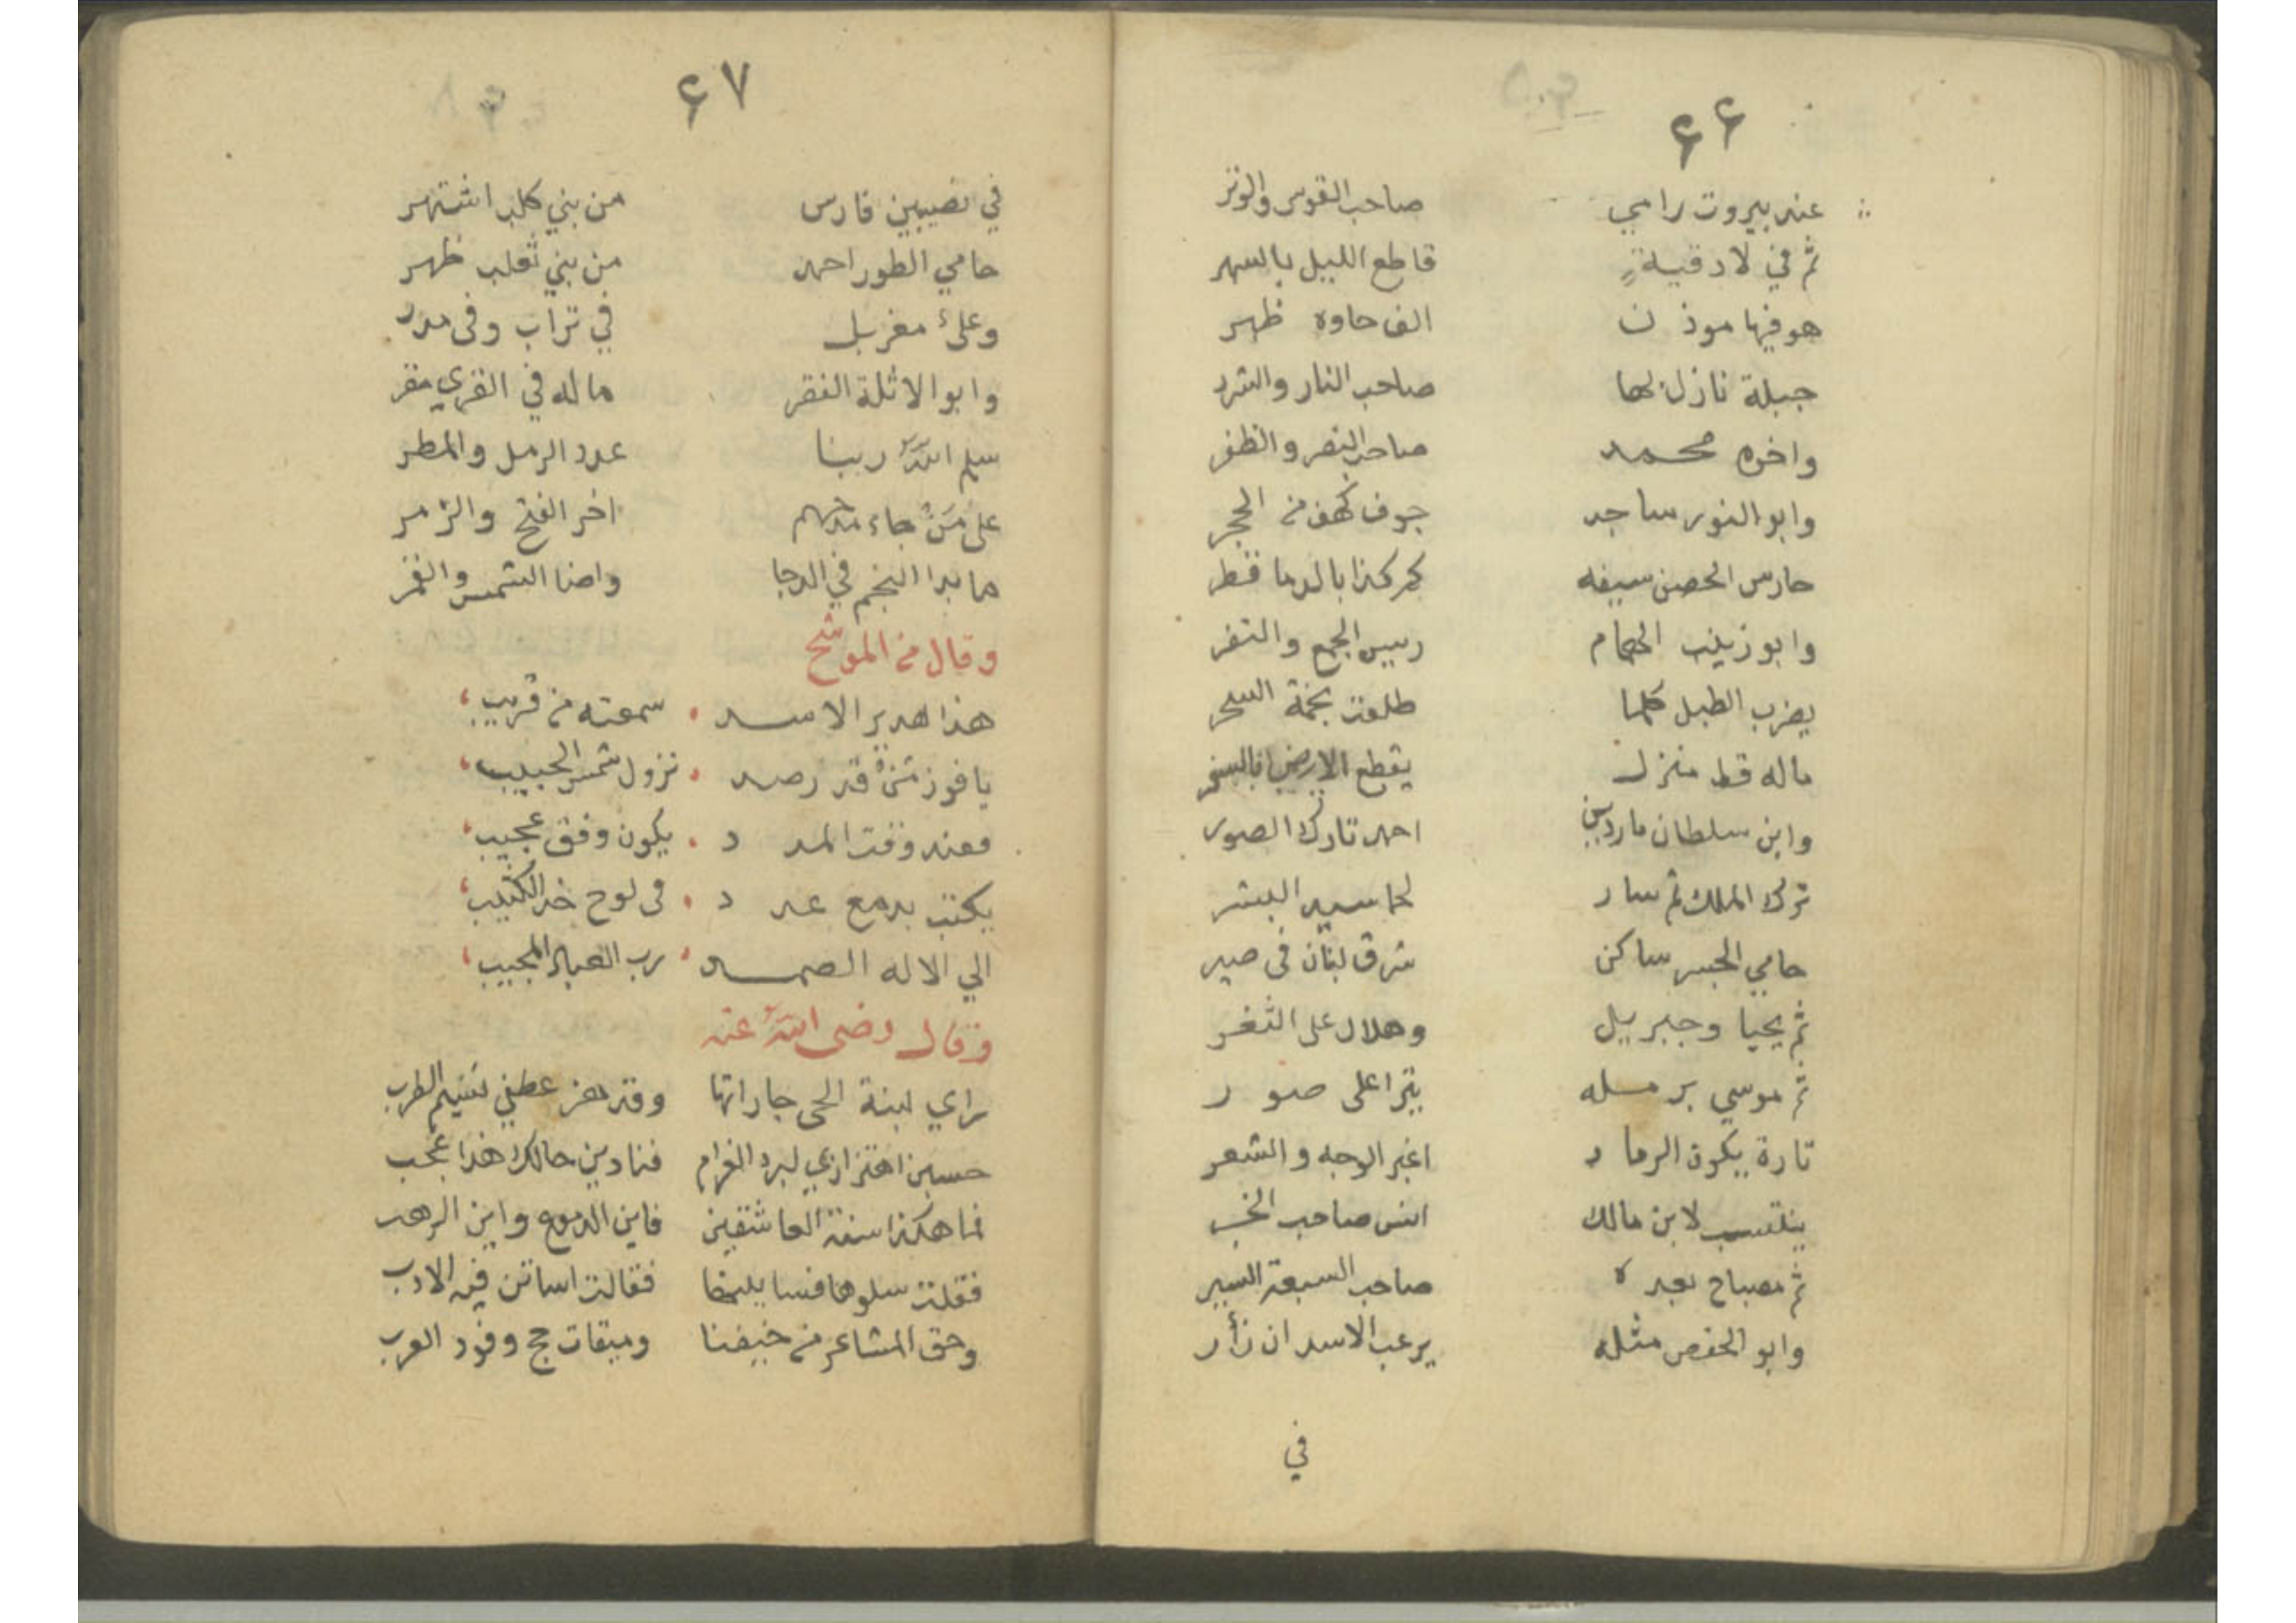 ۶۶
عند بيروت رامي صاحب القوس والوتر
ثم في لادقية قاطع الليل بالسهر
هو فيها موذن الف حاوه ظهر
جبلة نازل لها صاحب النار والشرر
واخوه محمد صاحب النصر والظفر
وابو النور ساجد جوف كهف من الحجر
حارس الحصن سيفه كم كذا بالدما قطر
وابو زينب الهمام رييس الجمع والنفر
يضرب الطبل كلما طلعت نجمة السحر
ماله قط منزل يقطع الارض بالسفر
وابن سلطان ماردين احمد تارك الصور
ترك الملك ثم سار لحما سيد البشر
حامي الجسر ساكن شرق لبنان في
ثم يحيا وجبريل وهلال على الثغر
ثم موسي برمله على صور
تارة يكون الرماد اغبر الوجه والشعر
ينتسب لابن مالك انس صاحب الخبر
ثم مصباح بعده صاحب السبعة السير
وابو الحفص مثله يرعب الاسد ان زأر
في
۶۷
في نصيبين فارس من بني كلب اشتهر
حامي الطور احمد من بني ثعلب ظهر
وعلئ مغربل في تراب وفى مدر
وابو الاثلة الفقر ماله في القري مقر
سلم الله ربنا عدد الرمل والمطر
على من جاء مدحهم اخر الفتح والزمر
ما بدا النجم في الدجا واضا الشمس والقمر
وقال من الموشح
هذا هدير الاسد سمعته من قريب
يا فوز من قد رصد نزول شمس الحبيب
معند وقت المدد يكون وفق عجيب
يكتب بدمع عدد فى لوح خد الكثيب
الي الاله الصمد رب العباد المجيب
وقال رضى الله عنه
راي ابنة الحى جاراتها وقد هز عطفي نسيم الطرب
حسبن اهتزازي لبرد الغرام فنادين حالك هذا عجب
فما هكذا سنة العاشقين فاين الدموع واين الرهب
فقلت سلوها فسايلنها فقالت اساتن فيه الادب
وحق المشاعر من خيفنا وميقات حج وفود العرب